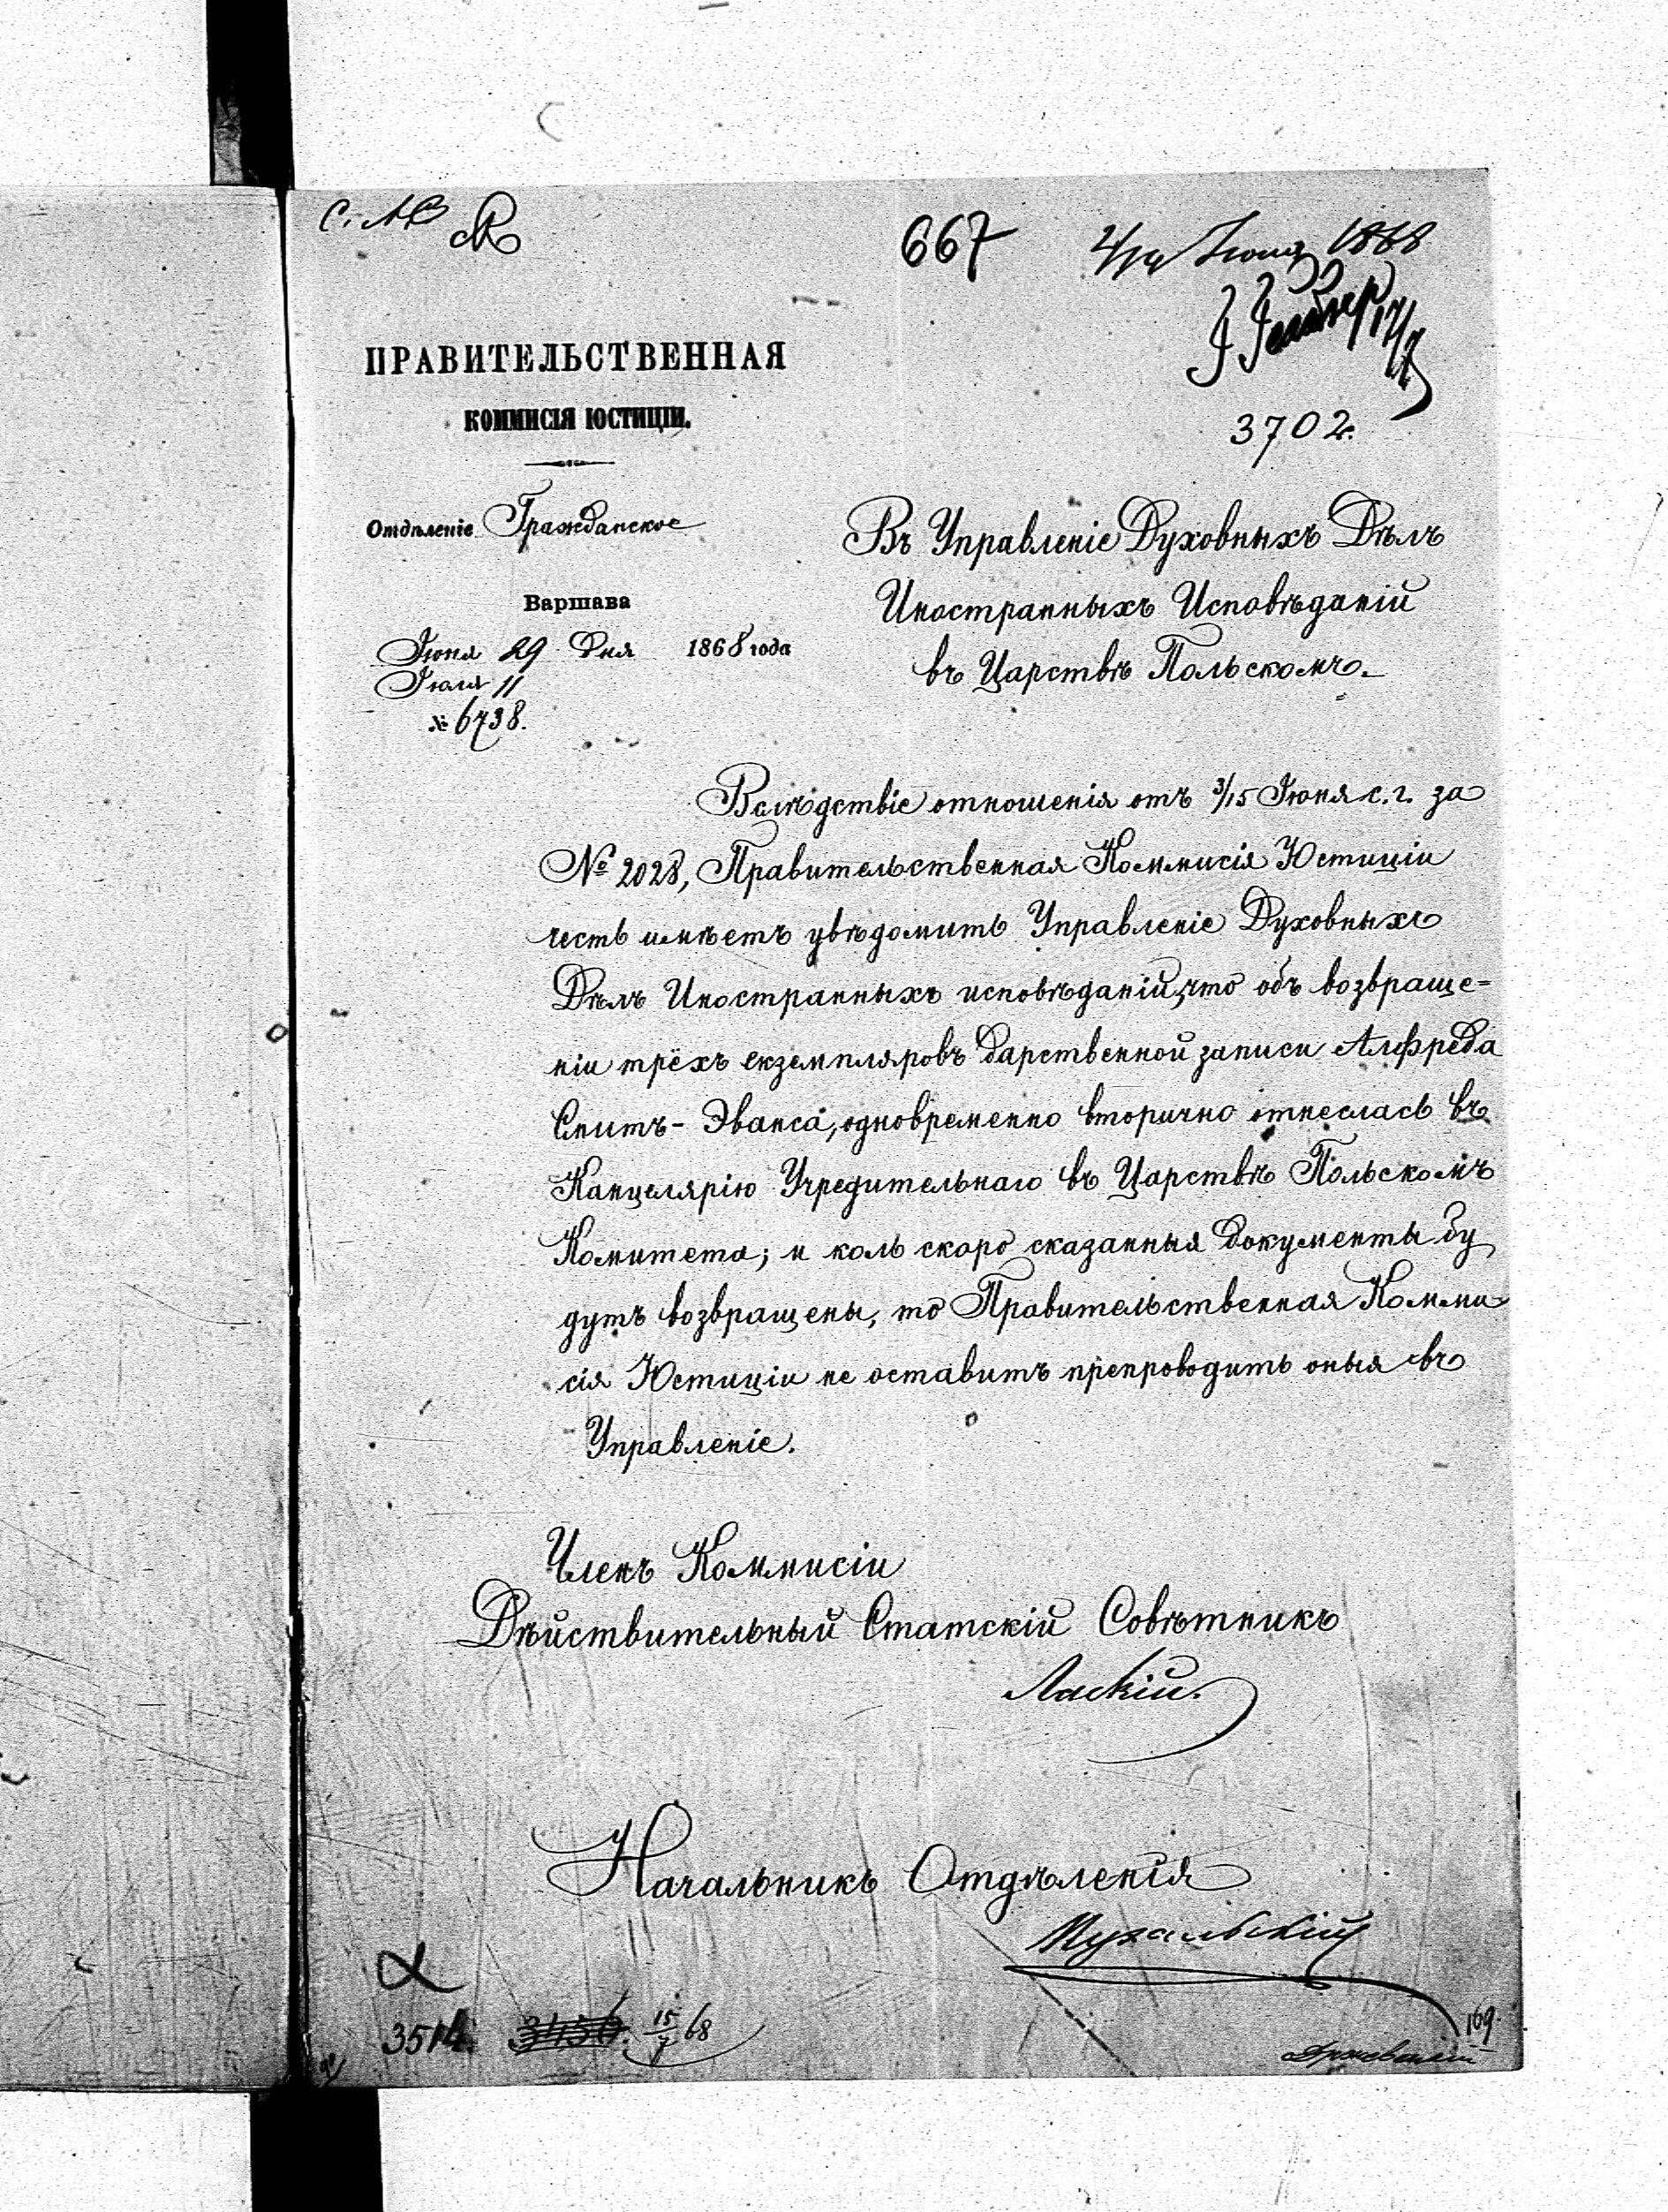 667
2/14 Іюля 1868
3702.
ПРАВИТЕЛЬСТВЕННАЯ
КОММИСІЯ ЮСТИЦІИ.
Отдѣленіе Гражданское
Варшава
Іюня 29 дня 1868 года
Іюля 11
№ 6738.
Въ Управленіе Духовныхъ Дѣлъ
Иностранныхъ Исповѣданій
въ Царствѣ Польскомъ.
Вслѣдствіе отношенія отъ 3/15 Іюня с. г. за
№ 2028, Правительственная Коммисія Юстиціи
честь имѣетъ увѣдомить Управленіе Духовныхъ
Дѣлъ Иностранныхъ исповѣданій, что объ возвраще=
ніи трёхъ екземпляровъ дарственной записи Альфреда
Смитъ-Эванса, одновременно вторично отнеслась въ
Канцелярію Учредительнаго въ Царствѣ Польскомъ
Комитета; и коль скоро сказанныя документы бу
дутъ возвращены, то Правительственная Комми-
сія Юстиціи не оставитъ препроводить оныя въ
Управленіе.
Членъ Коммисіи
Дѣйствительный Статскій Совѣтникъ
Ласкій.
Начальникъ Отдѣленія
3514. 3456. 15/7 68
169.